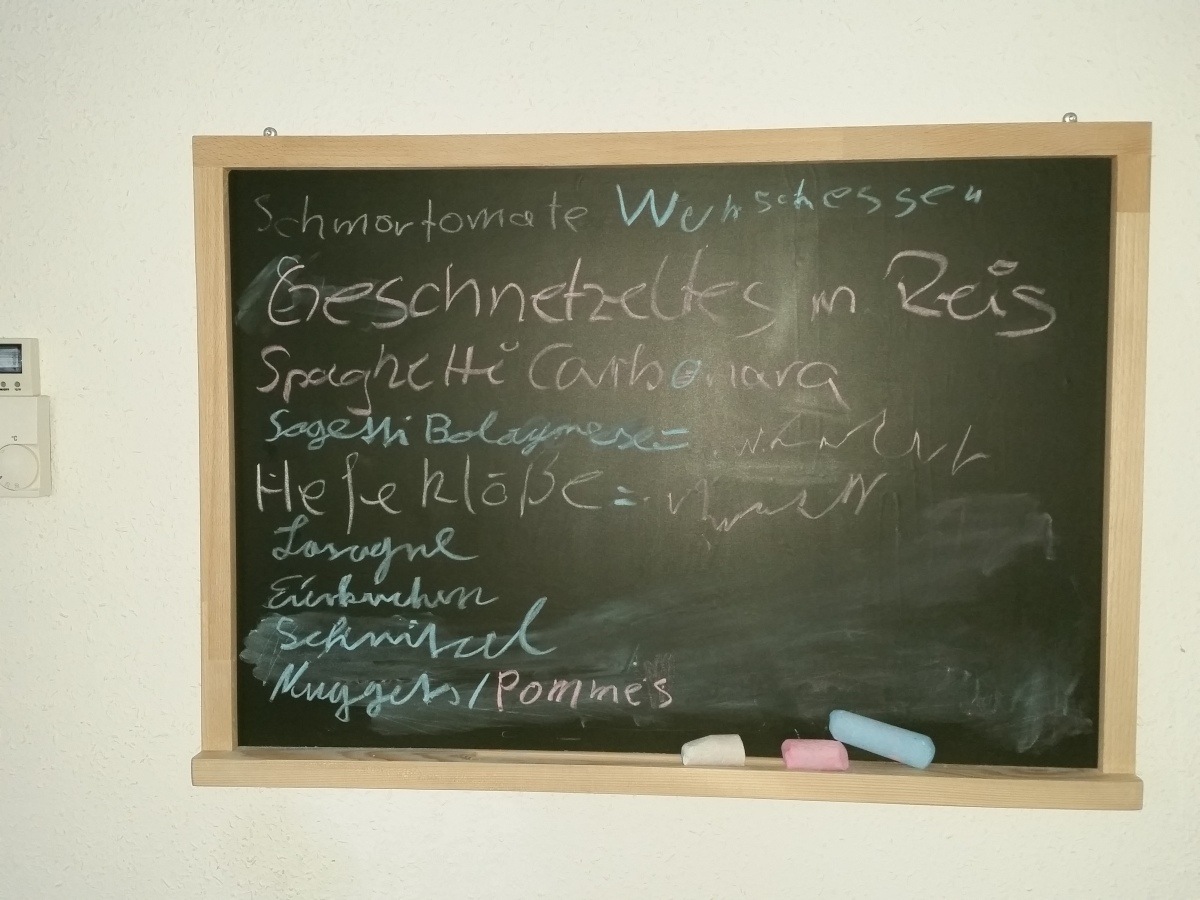 Schmortomate Wunschessen
Geschnetzeltes m Reis
Spaghetti Carbonara
Sagetti Bolagnese=
Hefeklöße=
Lasagne
Eierkuchen
Schnitzel
Nuggets/Pommes